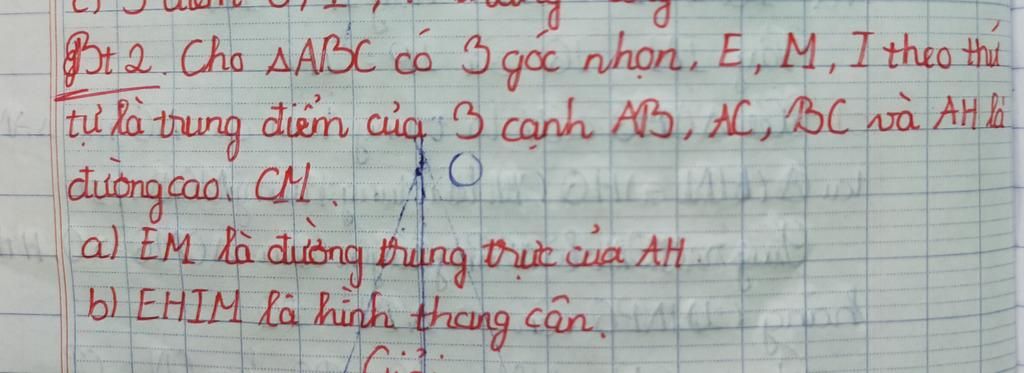 Bt 2. Cho ΔABC có 3 góc nhọn, E, M, I theo thứ
tự là trung điểm của 3 cạnh AB, AC, BC và AH là
đường cao. CM.
a) EM là đường trung trực của AH.
b) EHIM là hình thang cân.